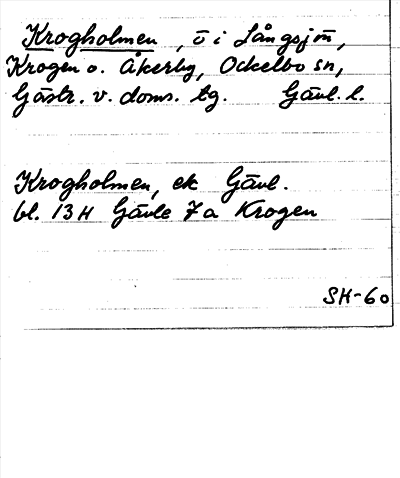 Krogholmen, ö i Långsjön,
Krogen o. Åkerby, Ockelbo sn,
Gästr. v. doms. tg. Gävl. l.
Krogholmen, ek Gävl.
bl. 13 H Gävle 7 a Krogen
SH-60